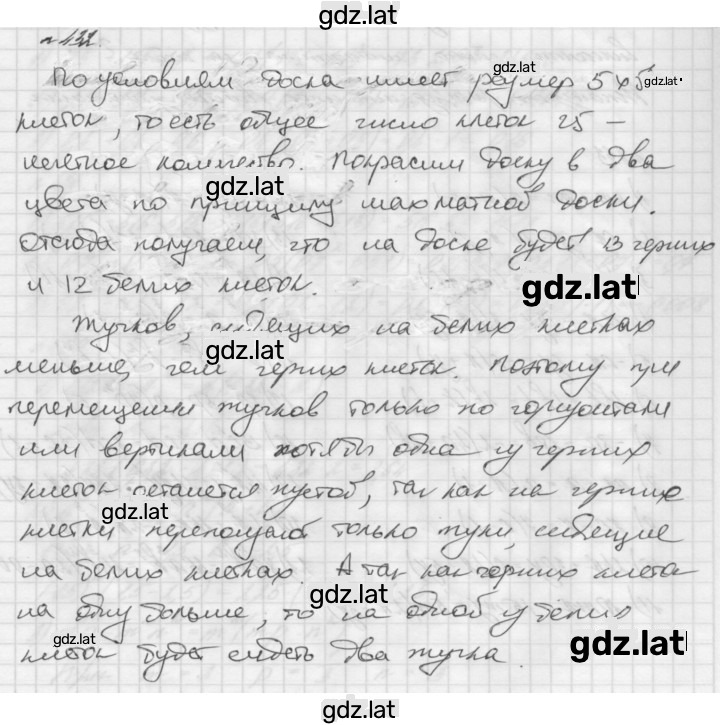 gdz.lat
№ 432.
По условиям доска имеет размер 5 х 5
gdz.lat
gdz.lat
клеток, то есть общее число клеток 25 –
нечетное количество. Покрасим доску в два
gdz.lat
цвета по принципу шахматной доски.
Отсюда получаем, что на доске будет 13 черних
и 12 белих клеток.
gdz.lat
Жучков, сидящих на белих клетках
gdz.lat
меньше, чем черних клеток. Поэтому при
перемещении жучков только по горизонтали
или вертикали хотя бы одна из черних
клеток останется пустой, так как на черние
gdz.lat
клетки переползают только жуки, сидящие
на белих клетках. А так как черних клеток
gdz.lat
на одну больше, то на одной из белих
gdz.lat
клеток будет сидеть два жучка.
gdz.lat
gdz.lat